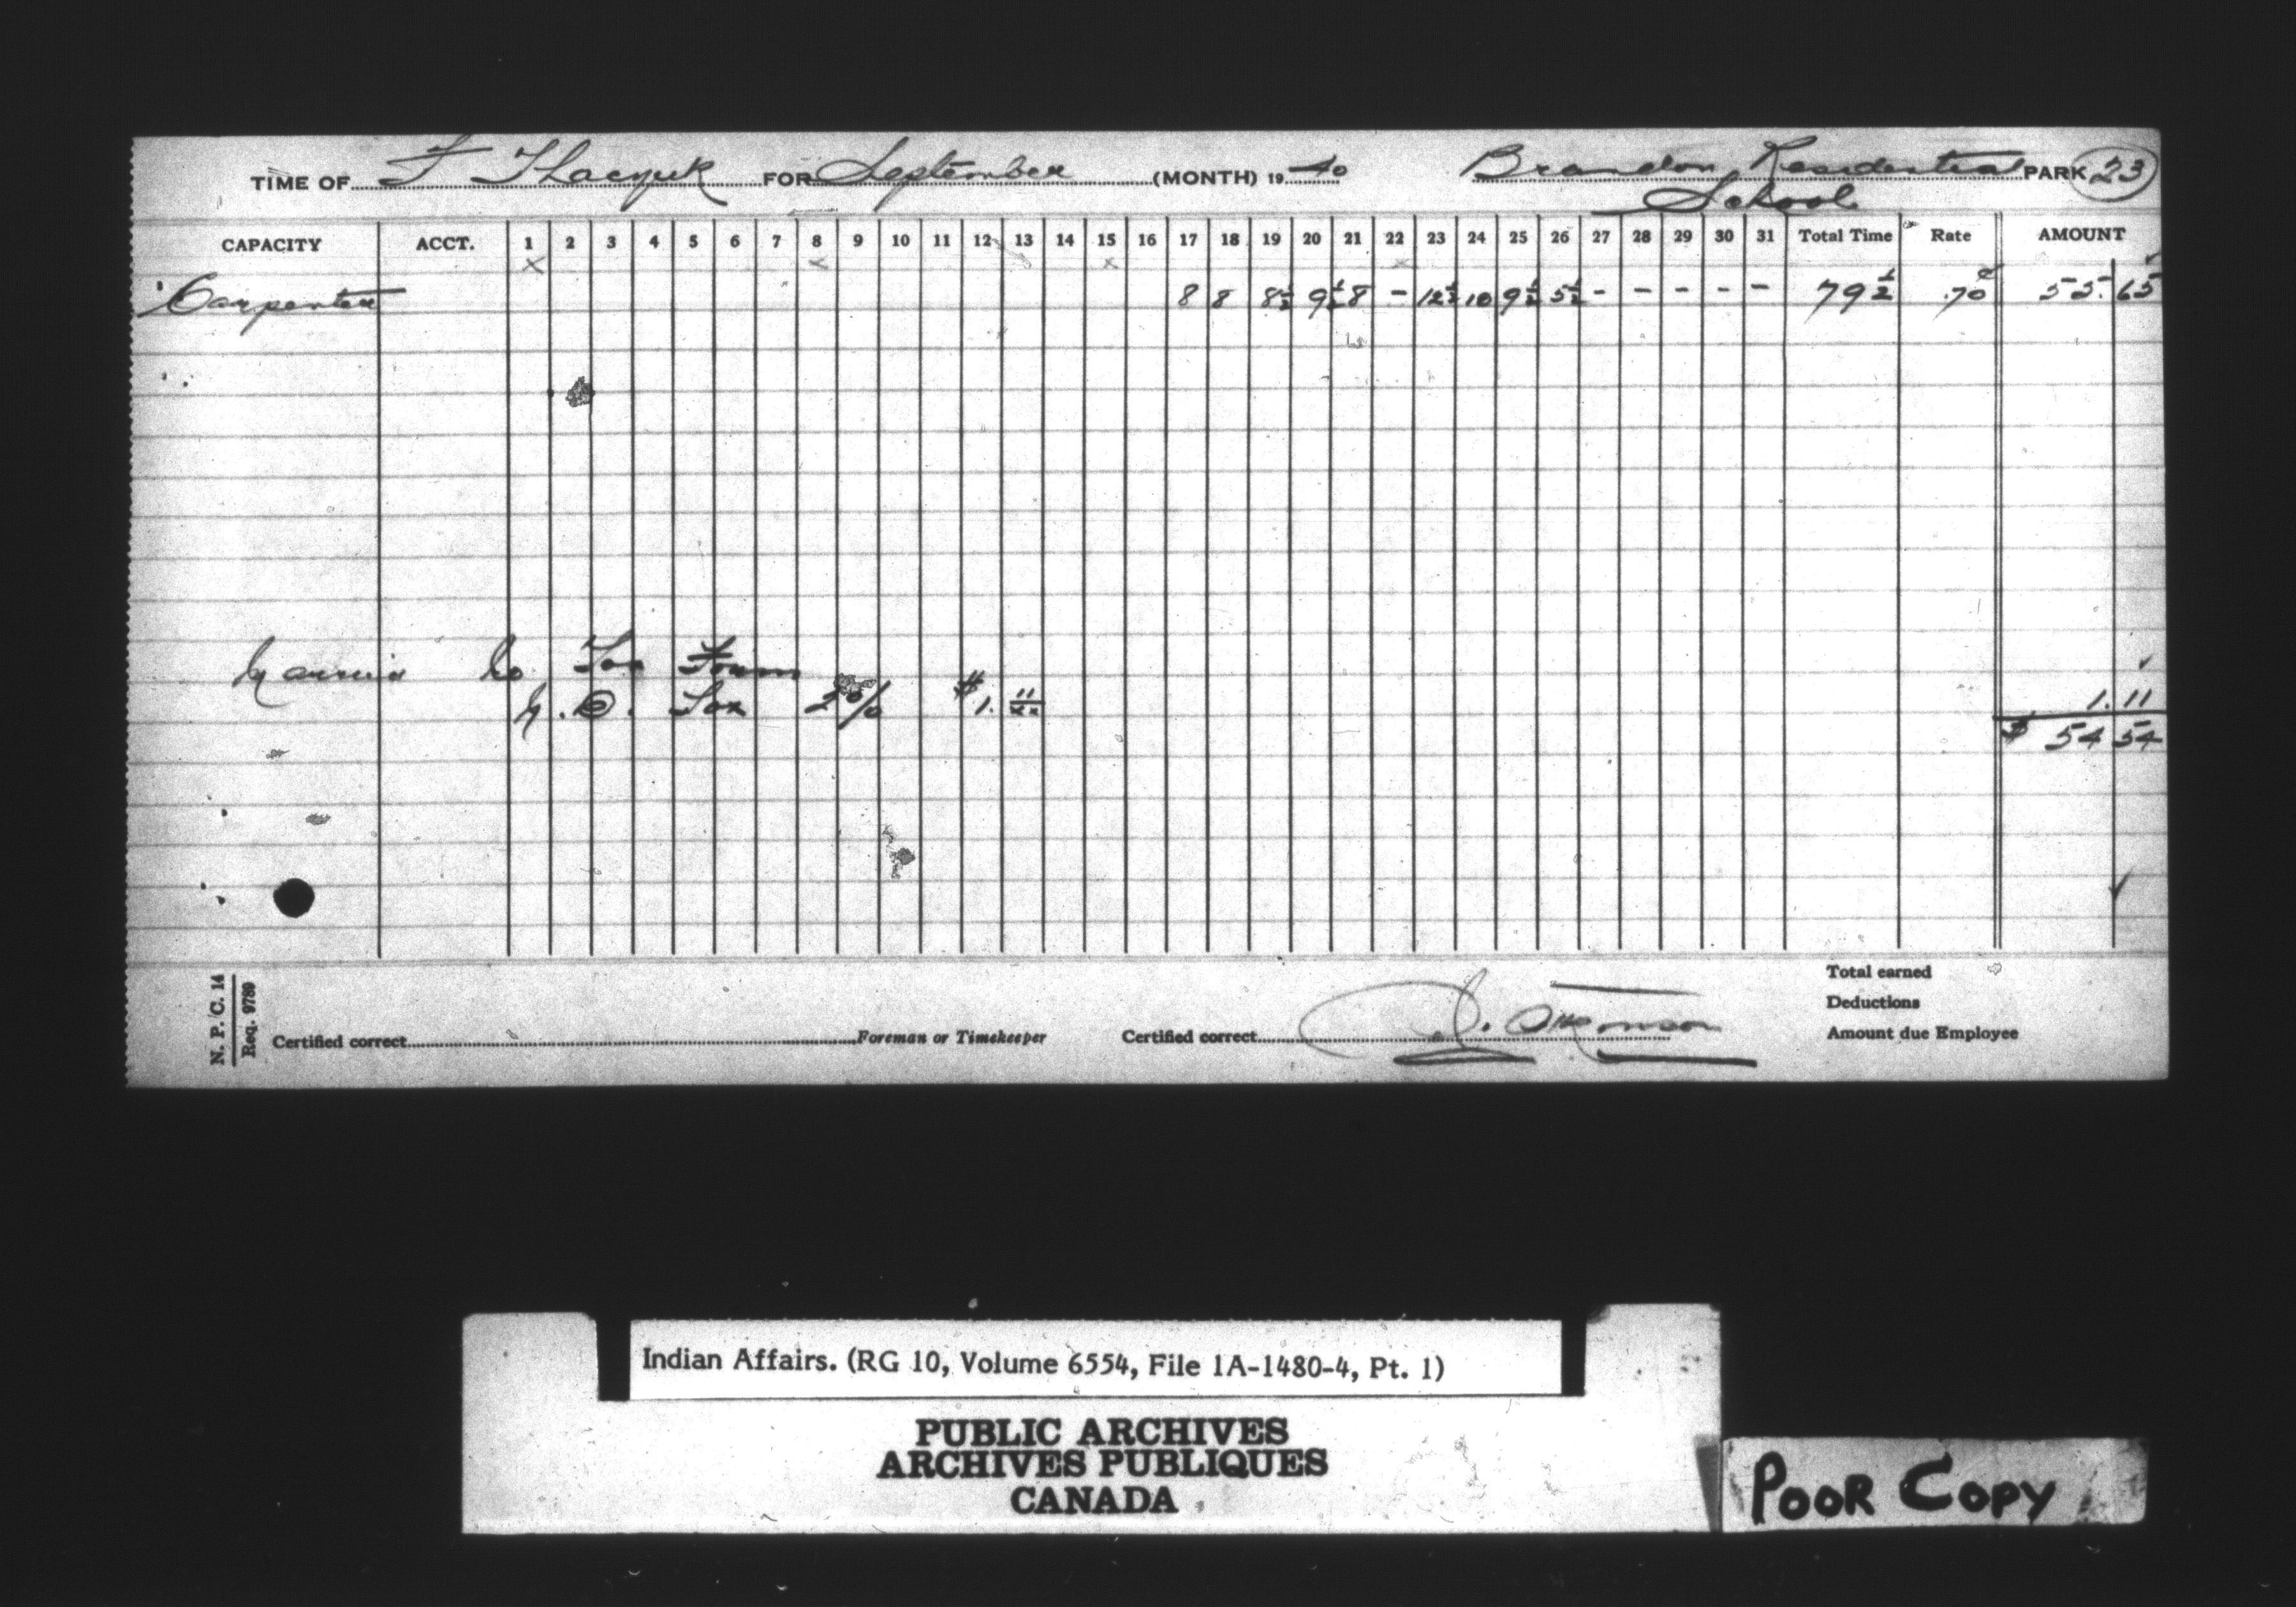 TIME OF F Tkaczuk FOR September (MONTH) 19 40 Brandon Residential School PARK 23
CAPACITY ACCT. 1 2 3 4 5 6 7 8 9 10 11 12 13 14 15 16 17 18 19 20 21 22 23 24 25 26 27 28 29 30 31 Total Time Rate AMOUNT
x x x x
Carpenter 8 8 8½ 9½ 8 - 12½ 10 9½ 5½ - - - - - 79½ .70 55.65
Married No Tax Form
N.D. Tax 2% $1.11/xx 1.11
$ 54 54
N. P. C. 14
Req. 9789
Certified correct Foreman or Timekeeper Certified correct
Total earned
Deductions
Amount due Employee
Indian Affairs. (RG 10, Volume 6554, File 1A-1480-4, Pt. 1)
PUBLIC ARCHIVES
ARCHIVES PUBLIQUES
CANADA
POOR COPY